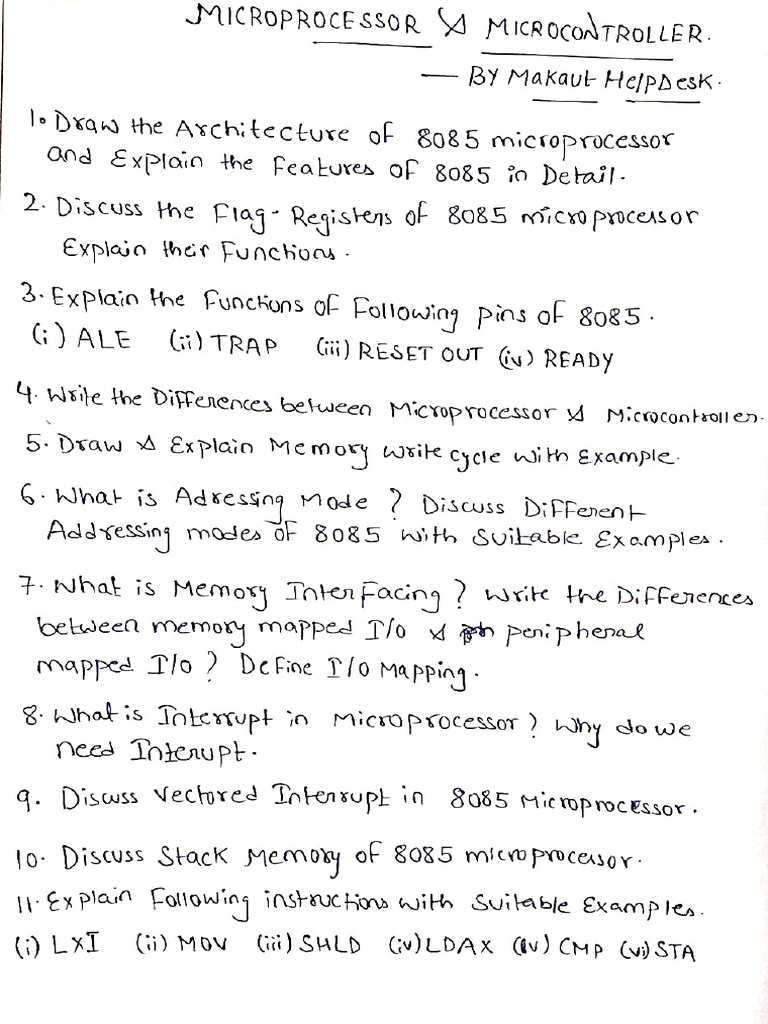 MICROPROCESSOR & MICROCONTROLLER.
— BY Makaut HelpDesk.
1. Draw the Architecture of 8085 microprocessor
and Explain the Features of 8085 in Detail.
2. Discuss the Flag-Registers of 8085 microprocessor
Explain their Functions.
3. Explain the Functions of Following pins of 8085.
(i) ALE (ii) TRAP (iii) RESET OUT (iv) READY
4. Write the Differences between Microprocessor & Microcontroller.
5. Draw & Explain Memory write cycle with Example.
6. What is Adressing Mode ? Discuss Different
Addressing modes of 8085 with Suitable Examples.
7. What is Memory InterFacing ? Write the Differences
between memory mapped I/O & peripheral
mapped I/O ? Define I/O Mapping.
8. What is Interrupt in Microprocessor ? Why do we
need Interupt.
9. Discuss Vectored Interrupt in 8085 Microprocessor.
10. Discuss Stack Memory of 8085 microprocessor.
11. Explain Following instructions with Suitable Examples.
(i) LXI (ii) MOV (iii) SHLD (iv) LDAX (iv) CMP (vi) STA